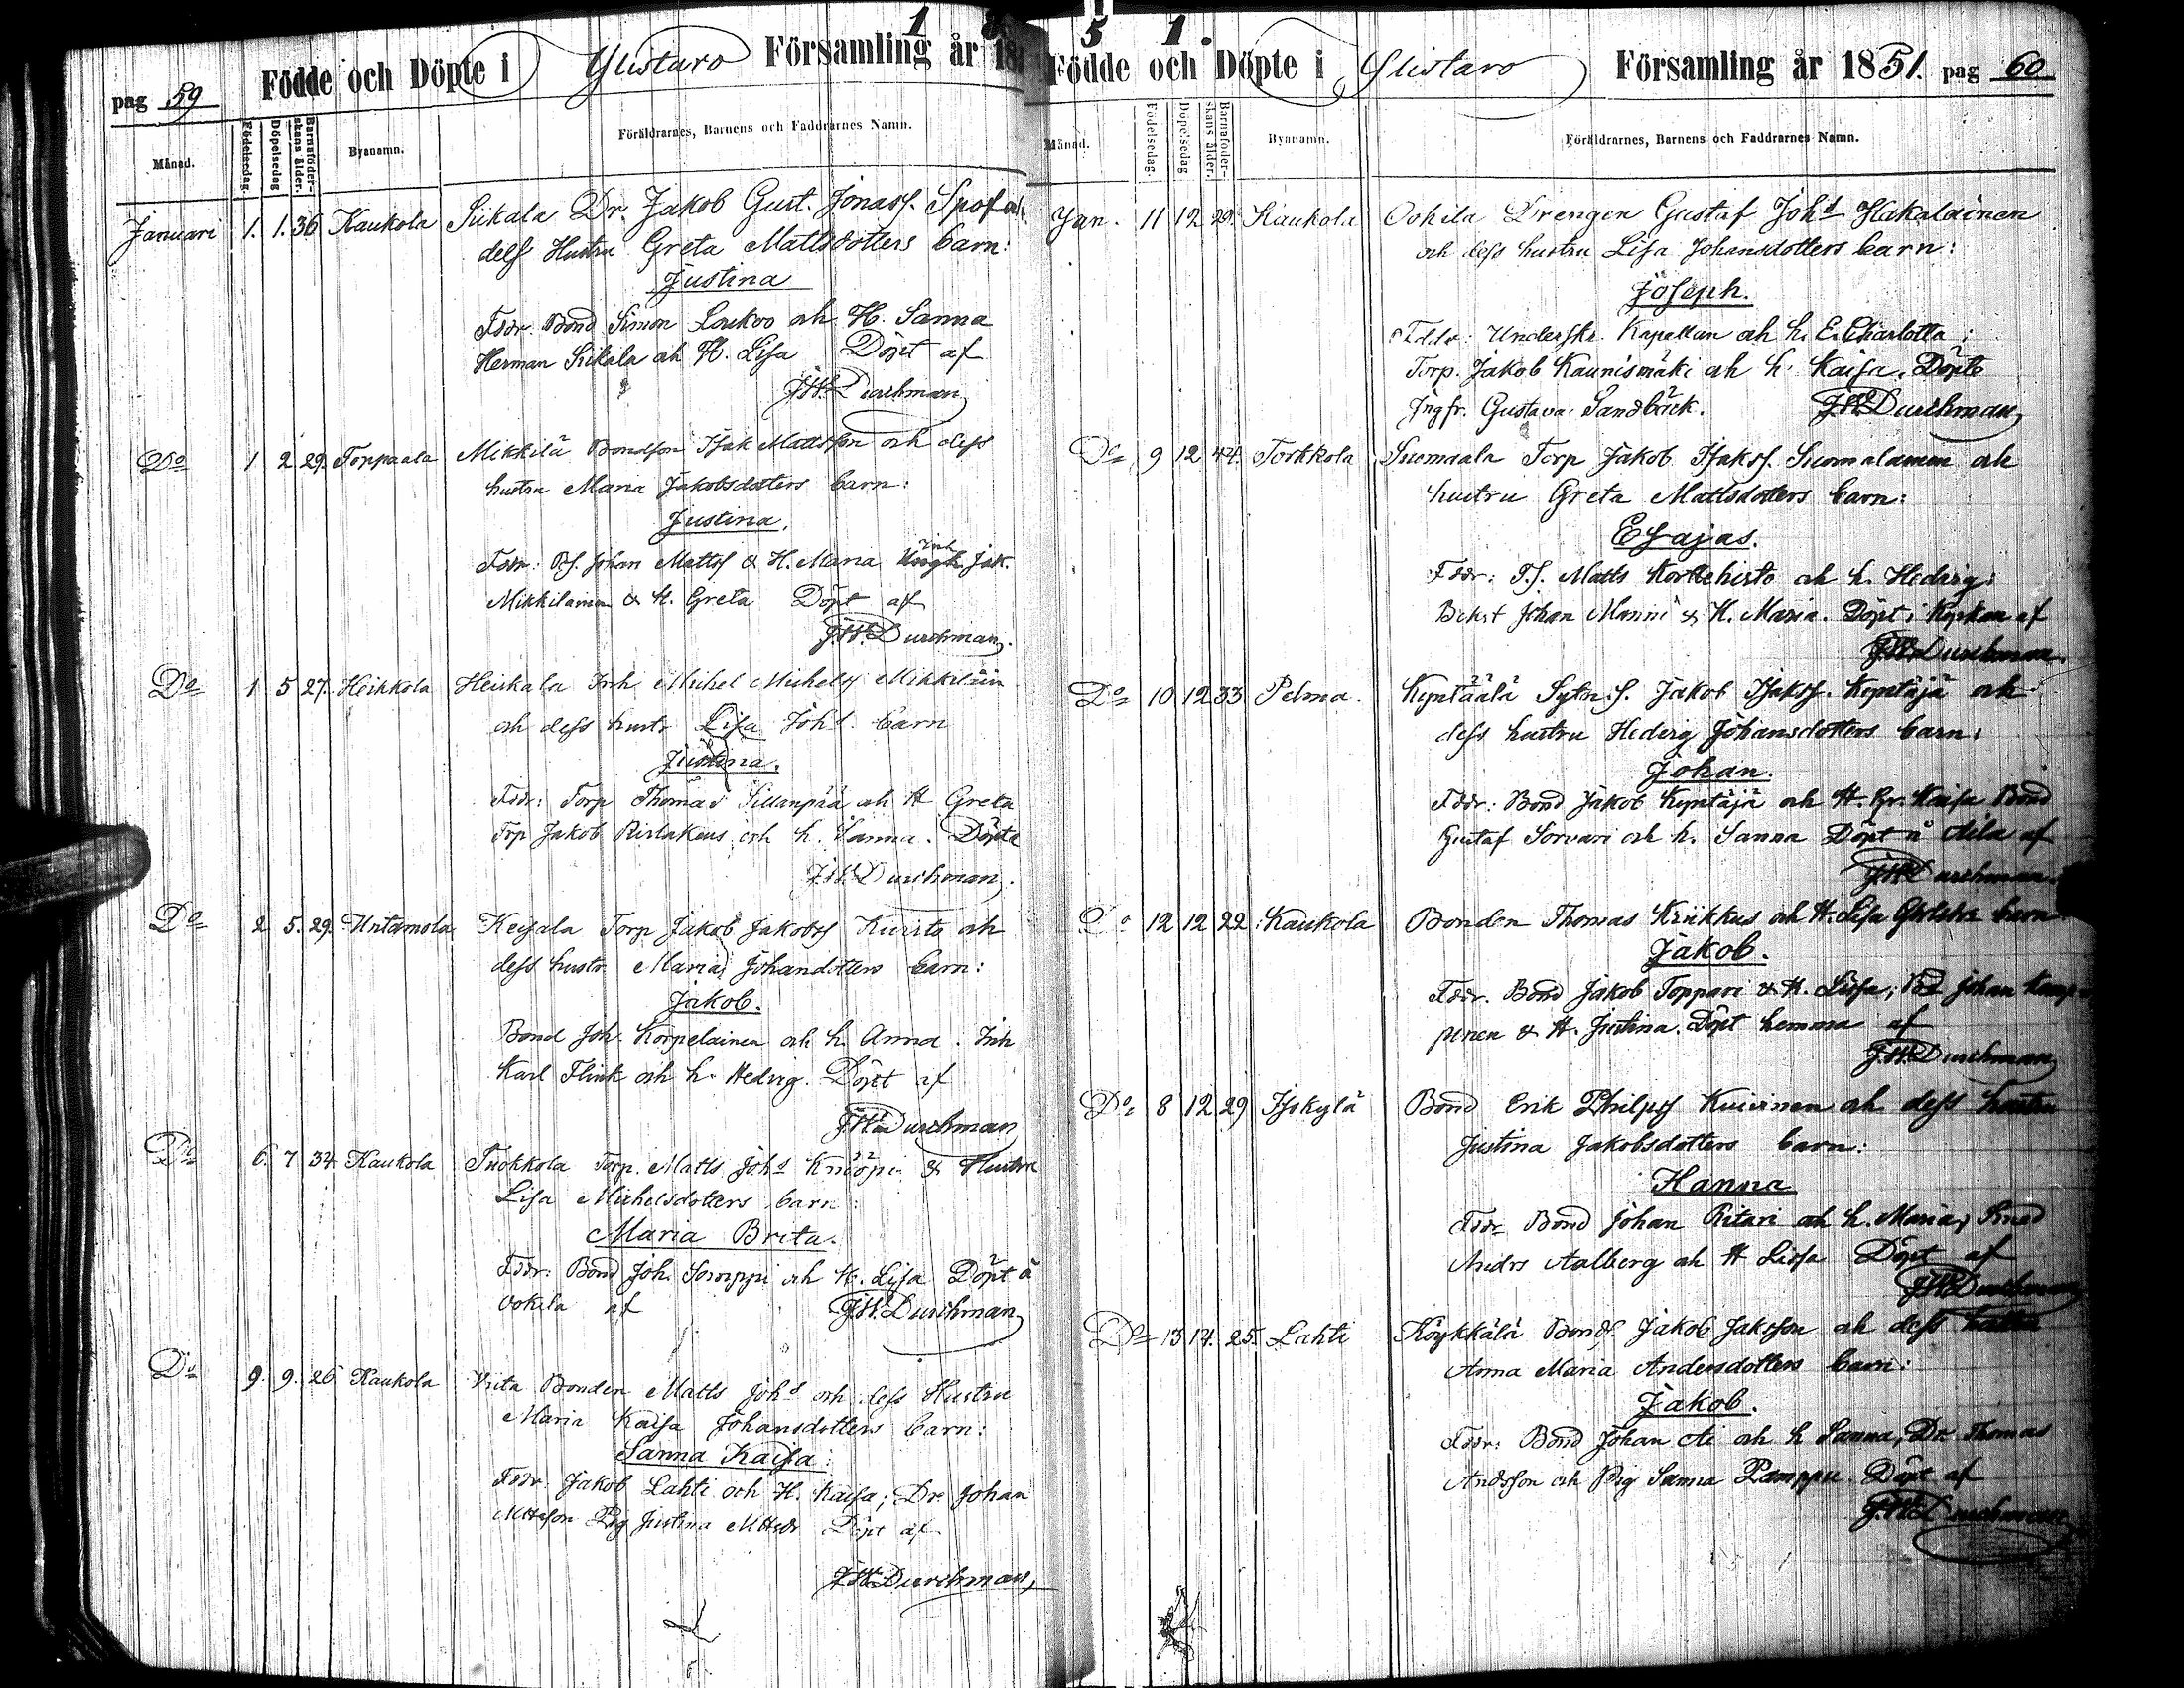 1
pag 59 Födde och Döpte i Ylistaro Församling år 18
Månad. Födelsedag. Döpelsedag Barnaföderskans ålder. Byanamn. Föräldrarnes, Barnens och Faddrarnes Namn.
Januari 1. 1. 36 Kaukola Siikala Dr. Jakob Gust. Jonass.
dess Hustru Greta Mattsdotters barn:
Justina
Fddr. Bond Simon Loukoo och H. Sanna
Herman Siikala och H. Lisa Döpt af
J.W. Durchman
Do 1 2 29. Toppaala Mikkilä Bondson Isak Mattsson och dess
hustru Maria Jakobsdotters barn:
Justina.
Fddr: Bs. Johan Matts & H. Maria Jak.
Mikkilainen & H. Greta Döpt af
J.W. Durchman.
Do 1 5 27. Heikkola Heikkala Inh Michel Michelss Mikkiläin
och dess hustr Lisa Johd barn
Justina.
Fddr: Torp Thomas Sillanpää och H Greta
Trp Jakob och h. Sanna. Döpte
J.W. Durchman.
Do 2 5. 29. Untamola Keisala Torp Jakob Jakobss Kuisto och
dess hustr. Maria Johandotters barn:
Jakob.
Bond Joh. Korpelainen och h. Anna. Inh
Karl Flink och h. Hedvig. Döpt af
J.W. Durchman
Do 6. 7 34 Kaukola Torp. Matts Johd Knööpi & Hustru
Lisa Michelsdotters barn:
Maria Brita.
Fddr: Bond Joh. Somppi och H. Lisa Döpt å
Ookila af J.W. Durchman
Do 9. 9. 26 Kaukola Viita Bonden Matts Johd och dess Hustru
Maria Kaisa Johansdotters barn:
Sanna Kaisa:
Fddr. Jakob Lahti och H. Kaisa; Dr. Johan
Mattsson Pig Justina Döpt af
J.W. Durchman,
5 1.
Födde och Döpte i Ylistaro Församling år 1851. pag 60
Månad. Födelsedag. Döpelsedag Barnaföderskans ålder. Byanamn. Föräldrarnes, Barnens och Faddrarnes Namn.
Jan. 11 12 29. Kaukola Ookila Drengen Gustaf Johd Hakalainen
och dess hustru Lisa Johansdotters barn:
Joseph.
Fddr: Underskr. Kapellan och h. E. Charlotta;
Torp. Jakob Kaunismäki och h. Kaisa. Döpte
Jngfr. Gustava Sandbäck. J.W. Durchman
Do 9 12 44. Torkkola Suomaala Torp Jakob Isakss. Suomalainen och
hustru Greta Mattsdotters barn:
Esajas.
Fddr: T.s. Matts Kortkehisto och h. Hedvig;
Johan Manni & H. Maria. Döpt i Kyrkan af
J.W. Durchman.
Do 10 12 33 Pelma. Kyntäälä Sytn.s. Jakob Isakss. Kyntäjä och
dess hustru Hedvig Johansdotters barn:
Johan.
Fddr: Bond Jakob Kyntäjä och H. Gr. Kaisa Bond
Gustaf Sorvari och h. Sanna Döpt å af
J.W. Durchman.
Do 12 12 22 Kaukola Bonden Thomas Kriikkus och H. Lisa barn
Jakob.
Fddr. Bond Jakob Toppari & H. Liisa; Bd Johan Kamp
pinen & H. Justina. Döpt hemma af
J.W. Durchman
Do 8 12 29 Isokylä Bond Erik Philpss Kuivinen och dess hustru
Justina Jakobsdotters barn:
Hanna
Fddr Bond Johan Ritari och h. Maria; Smed
Andrs Aalberg och H Liisa Döpt af
J.W. Durchman
Do 13 14. 25. Lahti Köykkälä Bonds. Jakob Jaksson och dess hustru
Anna Maria Andersdotters barn:
Jakob.
Fddr: Bond Johan och h Sanna, Dr. Thomas
Andsson och Pig Sanna Pamppu. Döpt af
J.W. Durchman